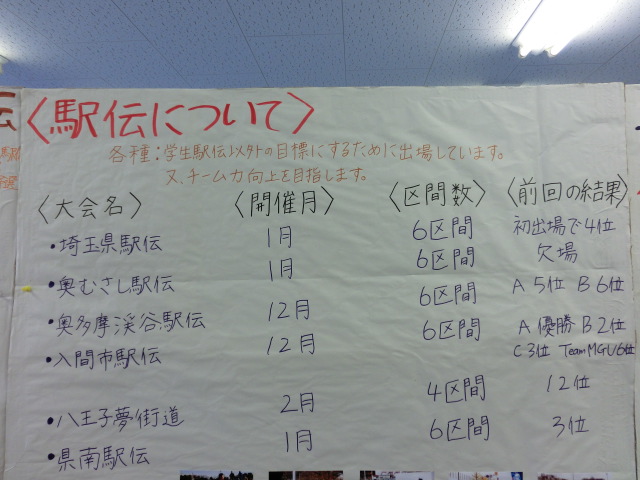 〈駅伝について〉
各種:学生駅伝以外の目標にするために出場しています。
又、チーム力向上を目指します。
〈大会名〉 〈開催月〉 〈区間数〉 〈前回の結果〉
・埼玉県駅伝 1月 6区間 初出場で4位
・奥むさし駅伝 1月 6区間 欠場
・奥多摩渓谷駅伝 12月 6区間 A 5位 B 6位
・入間市駅伝 12月 6区間 A 優勝 B 2位
C 3位 TeamMGU6位
・八王子夢街道 2月 4区間 12位
・県南駅伝 1月 6区間 3位